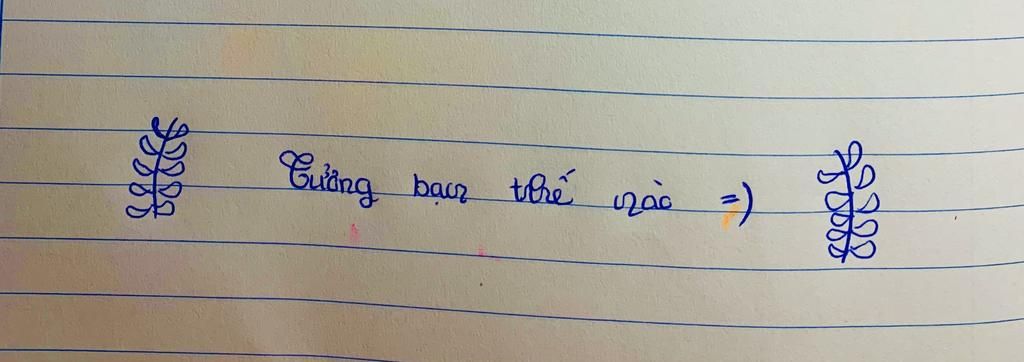 Tưởng bạn thế nào =)